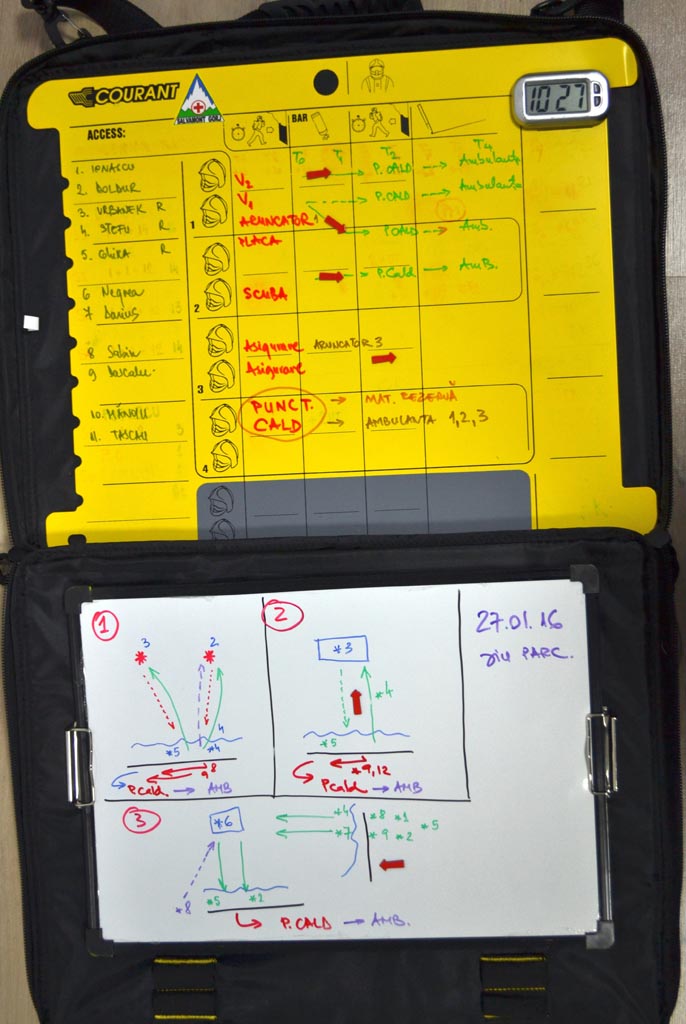 COURANT
SALVAMONT GORJ
10 27
ACCESS:
BAR
T0 T1 T2 T4
1. IONASCU
2. BOLDUR
3. URBANEK R
4. STEFU R
5. R
6 Negrea
7 Darius
8 Sabin
9 Dascalu
10. MĂNOIU
11. TASCAU
1
V2 P. CALD Ambulanta
V1 P. CALD Ambulanta
ARUNCATOR 1 P. CALD Amb.
PLACA
2
SCUBA P. Cald AMB.
Asigurare ARUNCATOR 3
Asigurare
3
PUNCT. MAT. REZERVĂ
CALD AMBULANTA 1,2,3
4
1
3 2
4
*5 *4
9 8
P.cald. AMB
2
*3
*4
*5
*9,12
P.cald AMB
27.01.16
Jiu PARC.
3
*6
*4 *8 *1
*7 *9 *2 *5
*8 *5 *2
P. CALD AMB.